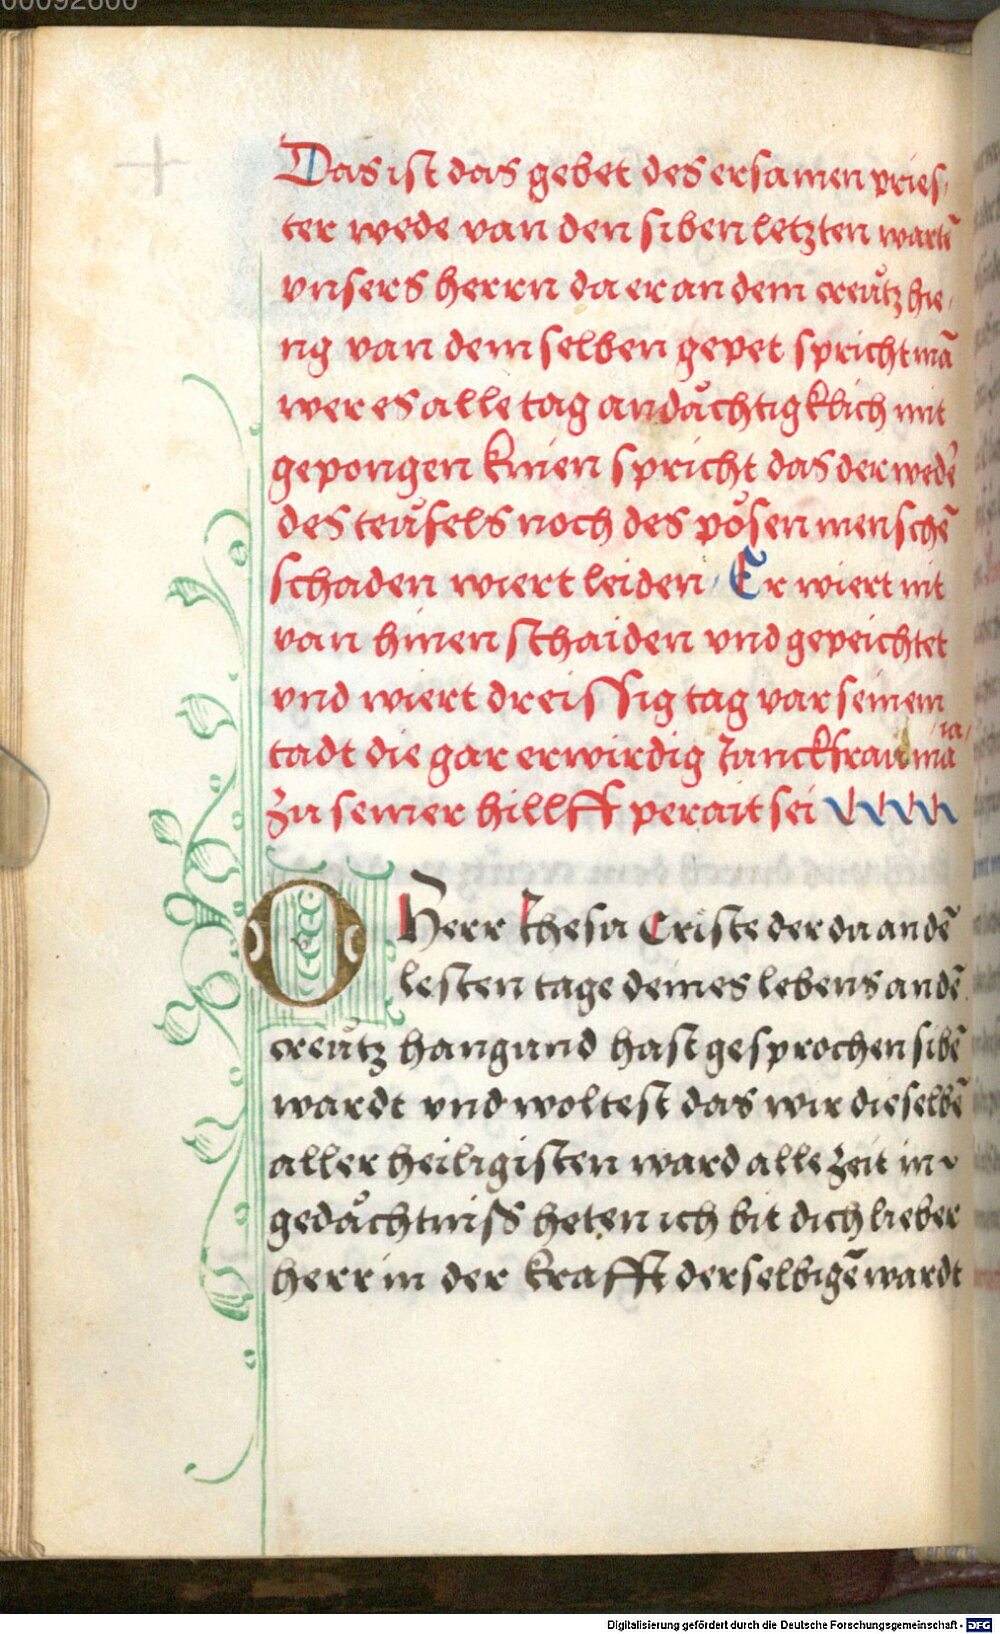 00092600
Das ist das gebet des ersamen pries,
ter wede van den siben letzten wartē
vnsers herrn da er an dem creůtz hie,
ng van dem selben gepet spricht mā
wer es alle tag andåchtigklich mit
gepongen knien spricht das der wedē
des teůfels noch des pösen menschē
schaden wiert leiden, Er wiert nit
van hinen schaiden vnd gepeichtet
vnd wiert dreissig tag var seinem
tadt die gar erwirdig Junckfraw maria
zu seiner hillff perait sei
O Herr Jhesu Criste der da an dē
lesten tage deines lebens an dē
creůtz hangund hast gesprochen sibē
wardt vnd woltest das wir die selbē
aller heiligisten ward alle zeit in
gedåchtniss heten ich bit dich lieber
herr in der krafft der selbigē wardt
Digitalisierung gefördert durch die Deutsche Forschungsgemeinschaft - DFG